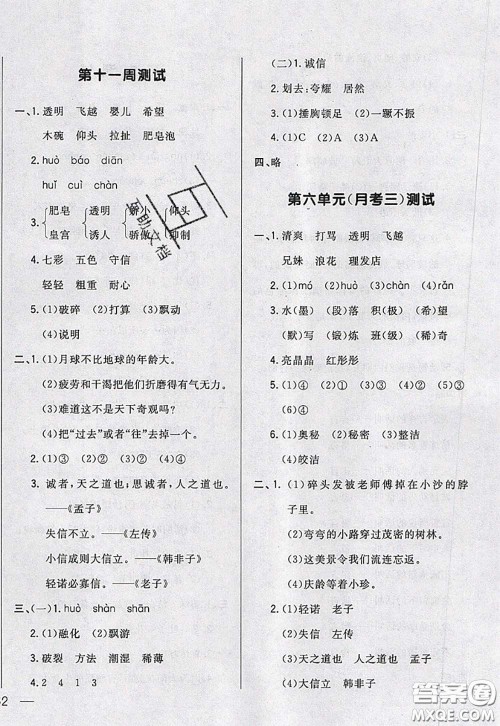 第十一周测试
一、1.透明 飞越 婴儿 希望
木碗 仰头 拉扯 肥皂泡
2.huò báo diān
huí cuì chàn
3.{肥皂 {透明 {骄 {仰头
皇宫 诱人 骄傲
4.七彩 五色 守信
轻轻 粗重 耐心
5.(1)破碎 (2)打算 (3)飘动
(4)说明
二、1.(1)月球不比地球的年龄大。
(2)疲劳和干渴把他们折磨得有气无力。
(3)难道这不是天下奇观吗?
(4)把“过去”或者“往”去掉一个
2.(1)③ (2)① (3)② (4)④
3.诚者,天之道也;思诚者,人之道也。
——《孟子》
失信不立。——《左传》
小信成则大信立。——《韩非子》
轻诺必寡信。——《老子》
三、(一)1.huò shàn shān
2.(1)融化 (2)飘游
3.破裂 方法 潮湿 稀薄
4.2 4 1 3
(二)1.诚信
2.划去:夸耀 居然
3.(1)捶胸顿足 (2)一蹶不振
4.(1)C (2)A (3)A
四、略
第六单元(月考三)测试
一、1.清爽 打骂 透明 飞越
兄妹 浪花 理发店
2.(1)mò (2)huò (3)chàn (4)rǎn
3.水(墨) (段)落 积(极)
(默)写 (锻)炼 班(级) (稀)奇
4.亮晶晶 红彤彤
5.(1)④ (2)① (3)② (4)⑥ (5)③
(6)⑤
6.(1)奥秘 (2)秘密 (3)整洁
(4)皎洁
二、1.(1)碎头发被老师傅掉在小沙的脖
子里。
(2)弯弯的小路穿过茂密的树林。
(3)这美景令我们流连忘返。
(4)庆龄等着小珍。
2.(1)轻诺 老子
(2)失信 左传
(3)天之道也 人之道也 孟子
(4)大信立 韩非子
互助文档
答案圈
MXQE.COM